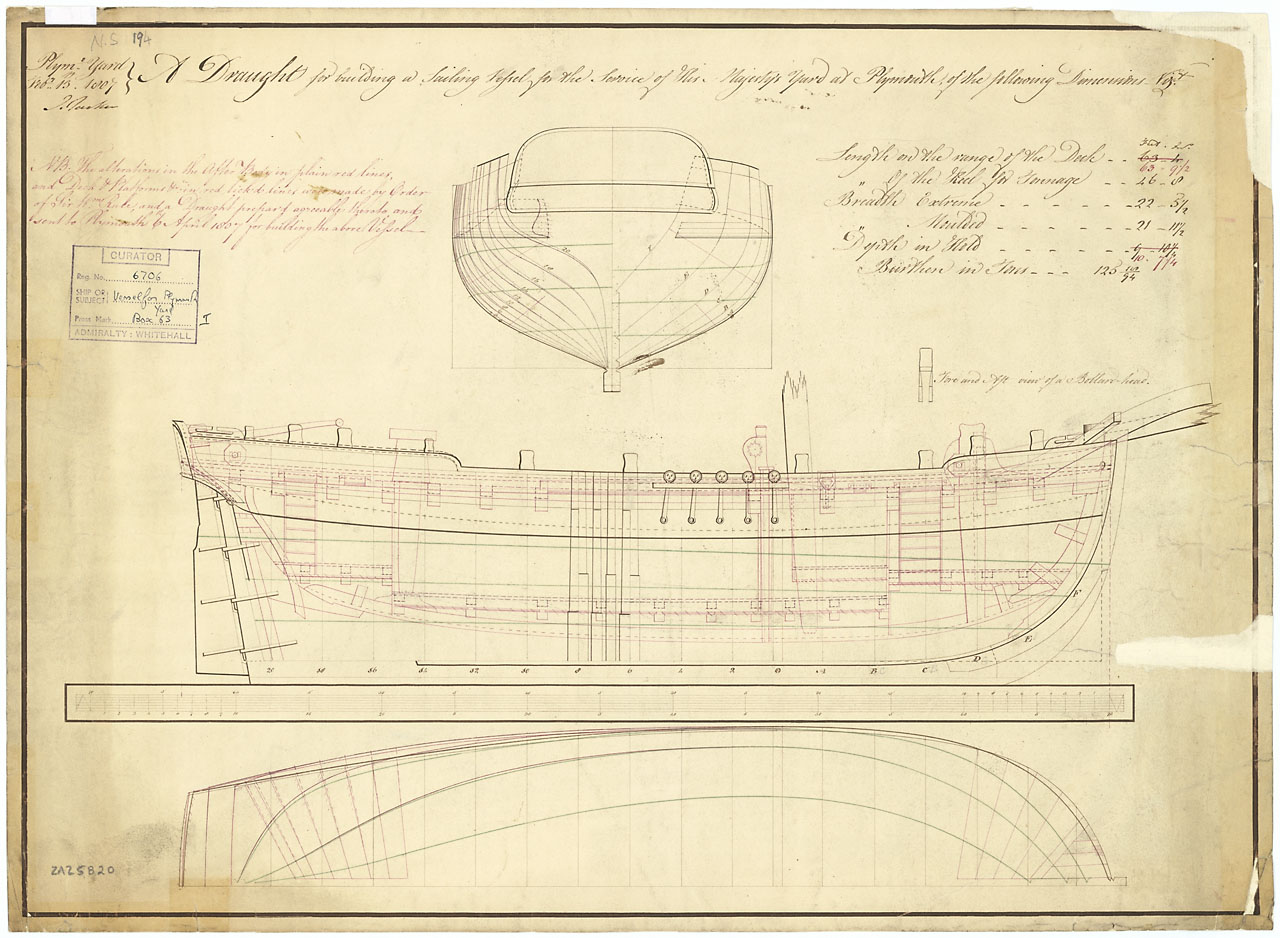 N.S 194
Plymo. Yard
1807
A Draught for building a Sailing Vessel for the Service of His Majesty's Yard at Plymouth, of the following Dimensions Vizt.
NB. The alterations in the After Body in plain red lines,
and Deck & Platforms &c in red ticked lines were made by Order
of Sir Wm. Rule and a Draught prepared agreeably thereto and
sent to Plymouth 6 April for building the above Vessel
CURATOR
Reg. No. 6706
SHIP OR SUBJECT: Vessel for Plymouth
Yard
Press Mark Box 63 I
ADMIRALTY: WHITEHALL
Length on the range of the Deck - - 63
63 - 9 1/2
" Of the Keel for Tonnage - - 46 - 8
Breadth Extreme - - - - - 22 - 5 1/2
Moulded - - - - - 21 - 11 1/2
Depth in Hold - - - - -
10. 7 1/4
Burthen in Tons - - - 125 /94
Fore and Aft view of a Bollard head.
F
E
D
C
B
A
ZAZ5820